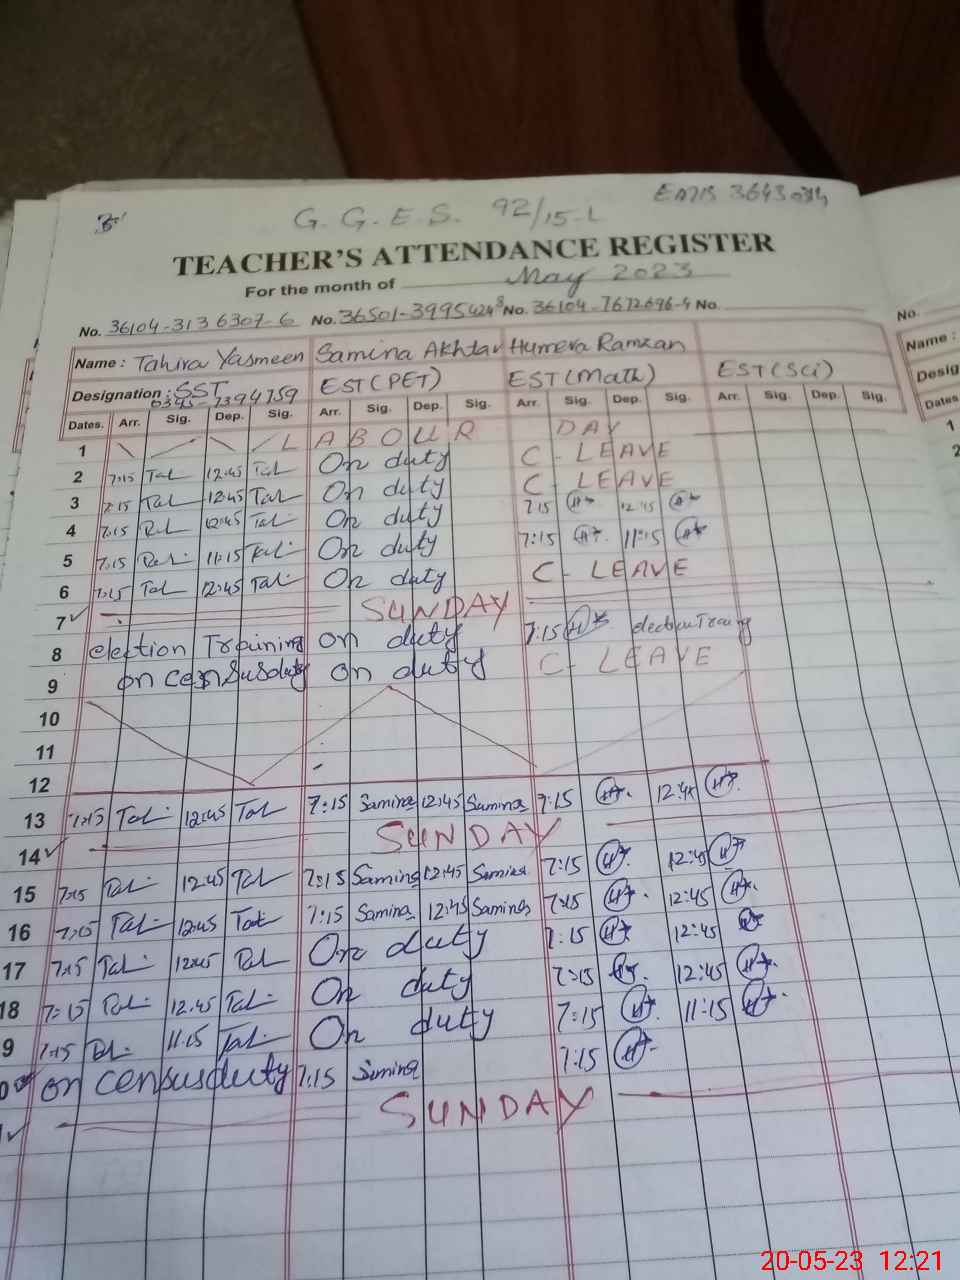 G. G. E. S. 92/15-L
TEACHER'S ATTENDANCE REGISTER
For the month of May 2023
No. 36104-3136307-6 No. 36501-3995424 No. 36104-7672696-4 No.
No.
Name : Tahira Yasmeen Samina Akhtar Humera Ramzan
Name :
Designation : SST EST (PET) EST (Math) EST (Sci)
Desig
Dates. Arr. Sig. Dep. Sig. Arr. Sig. Dep. Sig. Arr. Sig. Dep. Sig. Arr. Sig. Dep. Sig.
Dates
1 LABOUR DAY
1
2 7:15 Tal 12:45 Tal On duty C - LEAVE
2
3 7:15 Tal 12:45 Tal On duty C - LEAVE
4 7:15 12:45 Tal On duty 7:15 12:45
5 7:15 11:15 Tal On duty 7:15 11:15
6 7:15 Tal 12:45 Tal On duty C - LEAVE
7 SUNDAY
8 election Training on duty 7:15 election
9 on duty C - LEAVE
10
11
12
13 7:15 Tal 12:45 Tal 7:15 Samina 12:45 Samina 7:15
14 SUNDAY
15 7:15 12:45 Tal 7:15 Samina 12:45 Samina 7:15 12:45
16 7:15 Tal 12:45 7:15 Samina 12:45 Samina 7:15 12:45
17 7:15 Tal 12:45 On duty 7:15 12:45
18 7:15 12:45 Tal On duty 7:15 12:45
9 7:15 11:15 Tal On duty 7:15 11:15
0 on census duty 7:15 Samina 7:15
SUNDAY
20-05-23 12:21